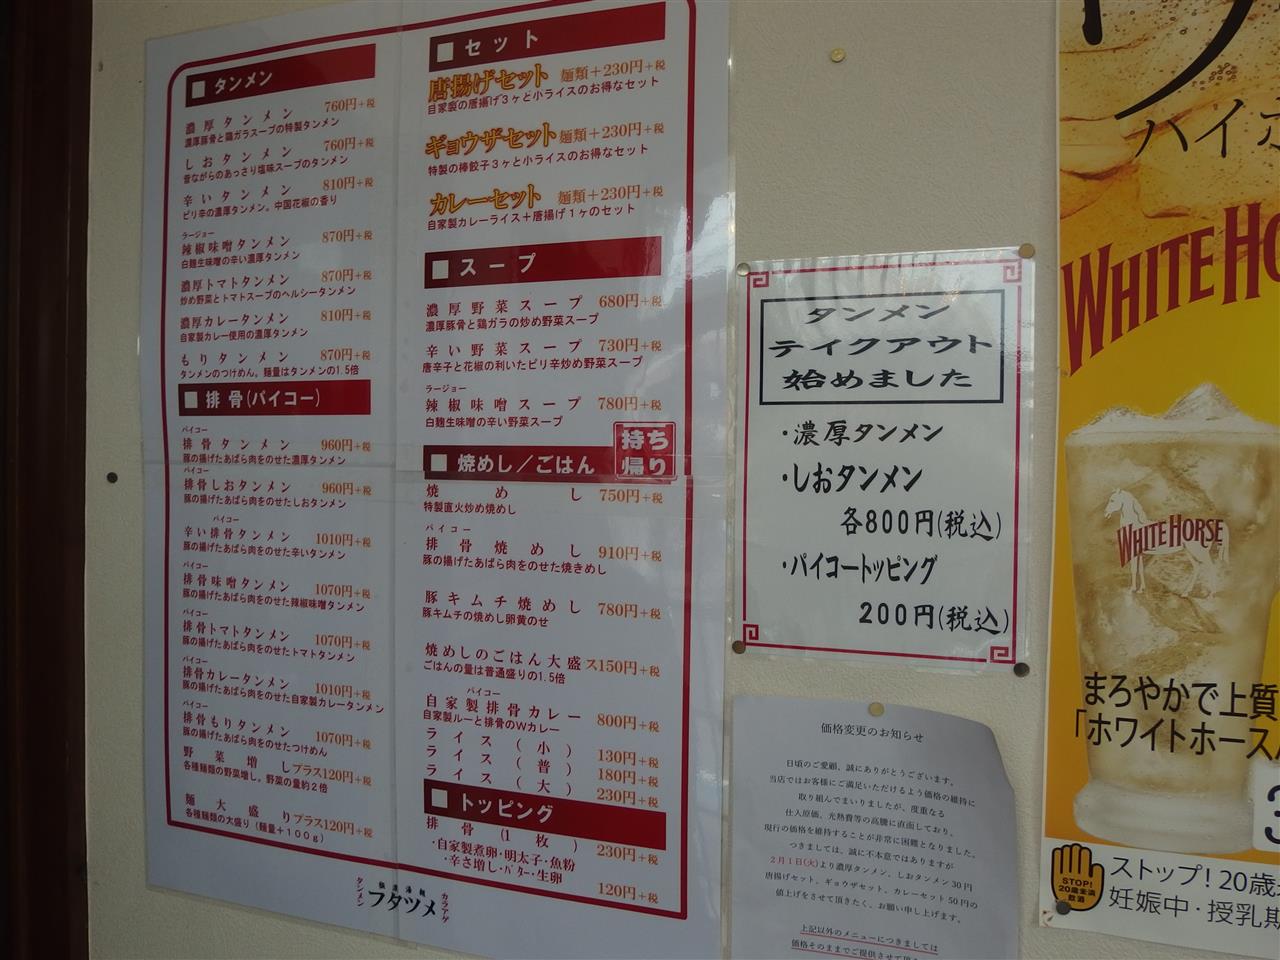 ■ タンメン
濃厚タンメン 760円+税
濃厚豚骨と鶏ガラスープの特製タンメン
しおタンメン 760円+税
昔ながらのあっさり塩味スープのタンメン
辛いタンメン 810円+税
ピリ辛の濃厚タンメン。中国花椒の香り
ラージョー
辣椒味噌タンメン 870円+税
白麹生味噌の辛い濃厚タンメン
濃厚トマトタンメン 870円+税
炒め野菜とトマトスープのヘルシータンメン
濃厚カレータンメン 810円+税
自家製カレー使用の濃厚タンメン
もりタンメン 870円+税
タンメンのつけめん。麺量はタンメンの1.5倍
■ 排骨(パイコー)
パイコー
排骨タンメン 960円+税
豚の揚げたあばら肉をのせた濃厚タンメン
パイコー
排骨しおタンメン 960円+税
豚の揚げたあばら肉をのせたしおタンメン
パイコー
辛い排骨タンメン 1010円+税
豚の揚げたあばら肉をのせた辛いタンメン
パイコー
排骨味噌タンメン 1070円+税
豚の揚げたあばら肉をのせた辣椒味噌タンメン
パイコー
排骨トマトタンメン 1070円+税
豚の揚げたあばら肉をのせたトマトタンメン
パイコー
排骨カレータンメン 1010円+税
豚の揚げたあばら肉をのせた自家製カレータンメン
パイコー
排骨もりタンメン 1070円+税
豚の揚げたあばら肉をのせたつけめん
野菜増し プラス120円+税
各種麺類の野菜増し。野菜の量約2倍
麺大盛り プラス120円+税
各種麺類の大盛り(麺量+100g)
■ セット
唐揚げセット 麺類+230円+税
自家製の唐揚げ3ヶと小ライスのお得なセット
ギョウザセット 麺類+230円+税
特製の棒餃子3ヶと小ライスのお得なセット
カレーセット 麺類+230円+税
自家製カレーライス+唐揚げ1ヶのセット
■ スープ
濃厚野菜スープ 680円+税
濃厚豚骨と鶏ガラの炒め野菜スープ
辛い野菜スープ 730円+税
唐辛子と花椒の利いたピリ辛炒め野菜スープ
ラージョー
辣椒味噌スープ 780円+税
白麹生味噌の辛い野菜スープ
■ 焼めし/ごはん 持ち帰り
焼めし 750円+税
特製直火炒め焼めし
パイコー
排骨焼めし 910円+税
豚の揚げたあばら肉をのせた焼きめし
豚キムチ焼めし 780円+税
豚キムチの焼めし卵黄のせ
焼めしのごはん大盛 ス150円+税
ごはんの量は普通盛りの1.5倍
パイコー
自家製排骨カレー 800円+税
自家製ルーと排骨のWカレー
ライス(小) 130円+税
ライス(普) 180円+税
ライス(大) 230円+税
■ トッピング
排骨(1枚) 230円+税
・自家製煮卵・明太子・魚粉
・辛さ増し・バター・生卵 120円+税
タンメン
フタツメ
カラアゲ
タンメン
テイクアウト
始めました
・濃厚タンメン
・しおタンメン
各800円(税込)
・パイコートッピング
200円(税込)
価格変更のお知らせ
日頃のご愛顧、誠にありがとうございます。
当店ではお客様にご満足いただけるよう価格の維持に
取り組んでまいりましたが、度重なる
仕入原価、光熱費等の高騰に直面しており、
現行の価格を維持することが非常に困難となりました。
つきましては、誠に不本意ではありますが
2月1日(火)より濃厚タンメン、しおタンメン30円
唐揚げセット、ギョウザセット、カレーセット50円の
値上げをさせて頂きたく、お願い申し上げます。
上記以外のメニューにつきましては
価格そのままでご提供させて
ハイボ
WHITE HO
WHITE HORSE
まろやかで上質
「ホワイトホース
STOP!
20歳未満
飲酒
ストップ!20歳未
妊娠中・授乳期